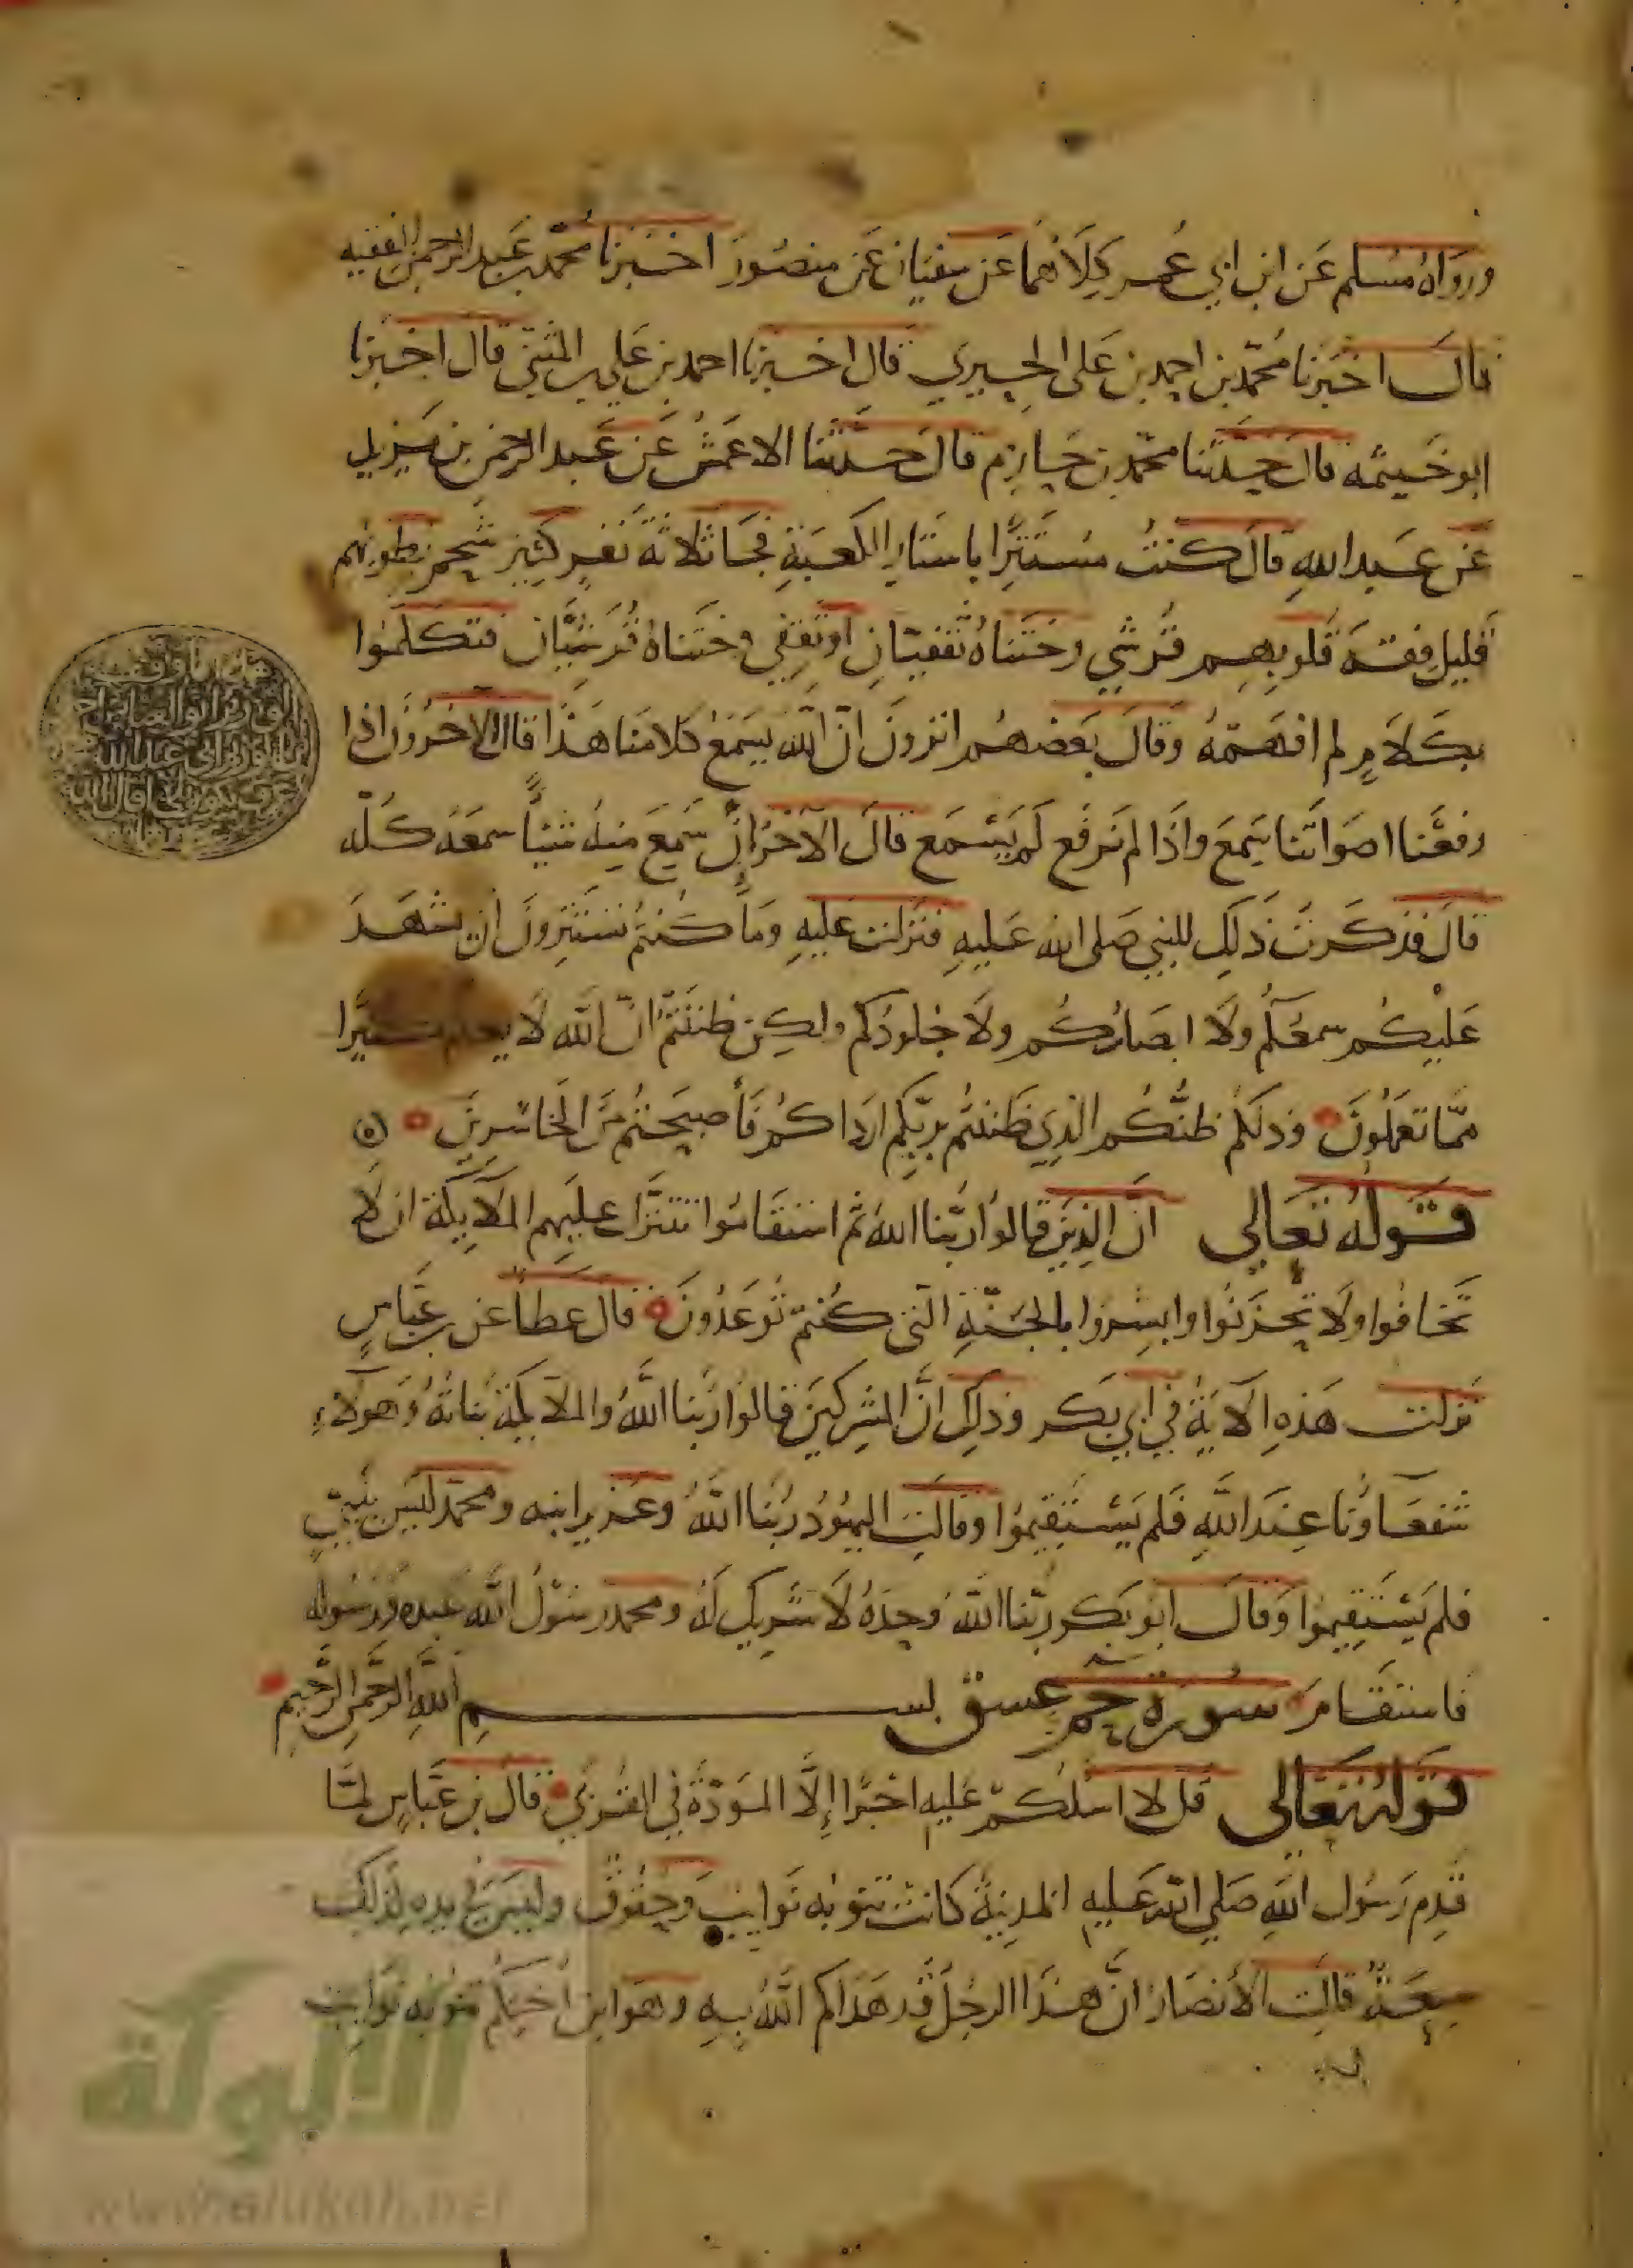 ورواه مسلم عن ابن ابي عمر كلاهما عن سفيان عن منصور اخبرنا محمد بن عبد الرحمن الفقيه
قال اخبرنا محمد بن احمد بن علي الحيري قال اخبرنا احمد بن علي بن المثنى قال اخبرنا
ابو خيثمه قال حدثنا محمد بن حازم قال حدثنا الاعمش عن عبد الرحمن بن يزيد
عن عبد الله قال كنت مستترا باستار الكعبة فجا ثلاثة نفر كثير شحم بطونهم
قليل فقه قلوبهم قرشي وختناه ثقفيان او ثقفي وختناه قرشيان فتكلموا
بكلام لم افهمه وقال بعضهم اترون ان الله يسمع كلامنا هذا قال الاخرون اذا
رفعنا اصواتنا يسمع واذا لم نرفع لم يسمع قال الآخر ان سمع منه شيئا سمعه كله
قال فذكرت ذلك للنبي صلى الله عليه فنزلت عليه وما كنتم تستترون ان يشهد
عليكم سمعكم ولا ابصاركم ولا جلودكم ولكن ظننتم ان الله لا يعلم كثيرا
مما تعملون وذلكم ظنكم الذي ظننتم بربكم ارداكم فأصبحتم من الخاسرين
قوله تعالي ان الذين قالوا ربنا الله ثم استقاموا تتنزل عليهم الملايكة ان لا
تخافوا ولا تحزنوا وابشروا بالجنة التي كنتم توعدون قال عطا عن بن عباس
نزلت هذه الآية في ابي بكر وذلك ان المشركين قالوا ربنا الله والملايكة بناته وهولاء
شفعاونا عند الله فلم يستقيموا وقالت اليهود ربنا الله وعزير ابنه ومحمد ليس بنبي
فلم يستقيموا وقال ابو بكر ربنا الله وحده لا شريك له ومحمد رسول الله عبده ورسوله
فاستقام سورة حم عسق بسم الله الرحمن الرحيم
قوله تعالي قل لا اسلكم عليه اجرا إلا المودة في القربي قال بن عباس لما
قدم رسول الله صلي الله عليه المدينة كانت تنوبه نوايب وحقوق وليس في يده لذلك
سعة قالت الأنصار ان هذا الرجل قد هداكم الله به وهو ابن اختكم تنوبه نوايب
الألوكة
www.alukah.net